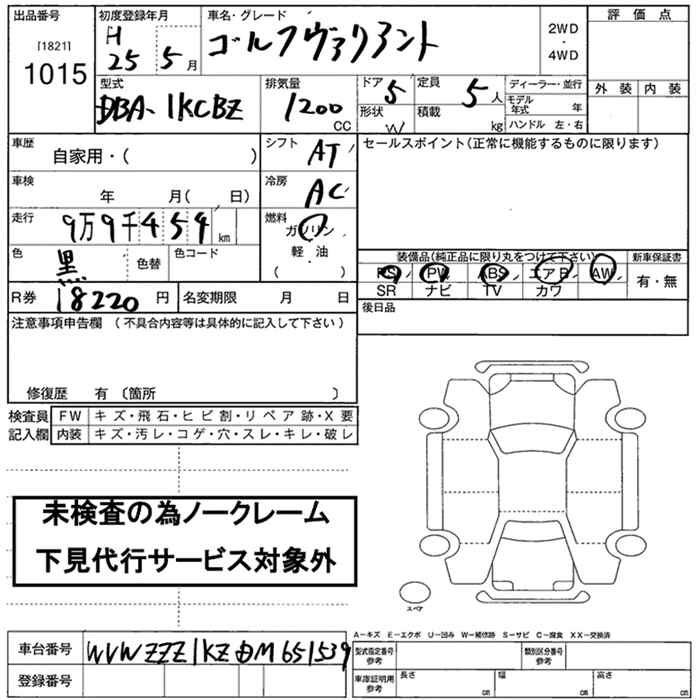 出品番号 初度登録年月 車名・グレード 評価点
[1821] H ゴルフヴァリアント 2WD
1015 25 5 月 ・ 4WD
型式 排気量 ドア 定員 ディーラー・並行 外装 内装
DBA-1KCBZ 1200 CC 5 5 人 モデル年式 年
形状 W 積載 kg ハンドル 左・右
車歴 自家用・( ) シフト AT セールスポイント(正常に機能するものに限ります)
車検 年 月( 日) 冷房 AC
走行 9万9千454 km 燃料 ガソリン
色 黒 色替 色コード 軽・油 ( )
装備品(純正品に限り丸をつけて下さい) 新車保証書
PS PW ABS エアB AW 有・無
SR ナビ TV カワ
R券 18220 円 名変期限 月 日 後日品
注意事項申告欄 (不具合内容等は具体的に記入して下さい)
修復歴 有 〔箇所 〕
検査員 FW キズ・飛石・ヒビ割・リペア跡・X要
記入欄 内装 キズ・汚レ・コゲ・穴・スレ・キレ・破レ
未検査の為ノークレーム
下見代行サービス対象外
スペア
A−キズ E−エクボ U−凹み W−補修跡 S−サビ C−腐食 XX−交換済
車台番号 WVWZZZ1KZDM651539 型式指定番号 参考 類別区分番号 参考
登録番号 車庫証明用 参考 長さ cm 幅 cm 高さ cm